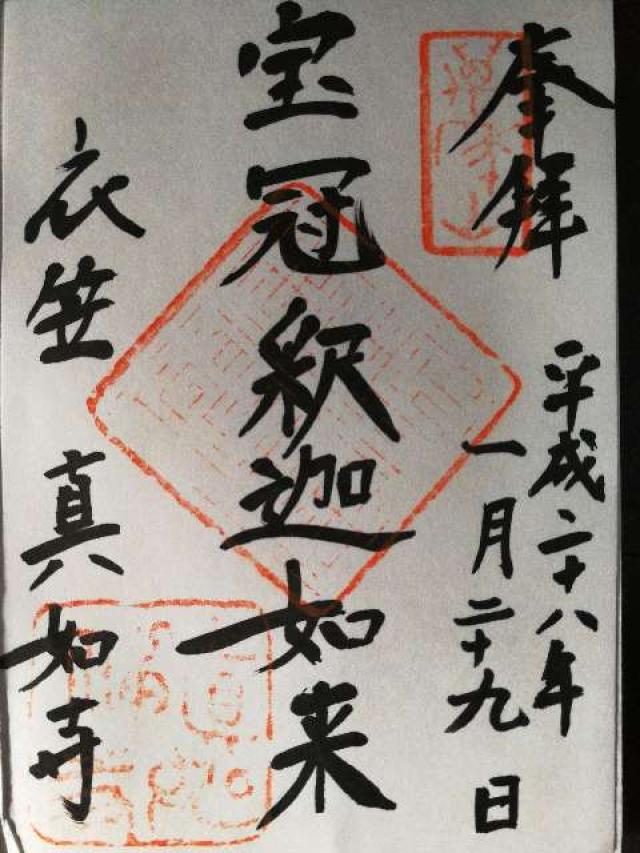 奉拝
平成二十八年
一月二十九日
宝冠釈迦如来
衣笠 真如寺